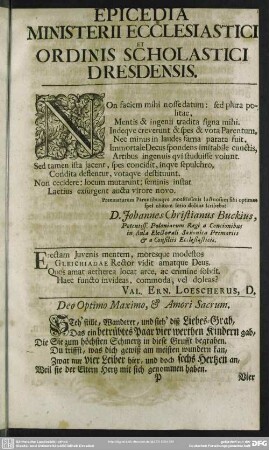 EPICEDIA
MINISTERII ECCLESIASTICI
ET
ORDINIS SCHOLASTICI
DRESDENSIS.
NOn faciem mihi nosse datum: sed plura politiæ,
Mentis & ingenii tradita signa mihi.
Indeque creverunt & spes & vota Parentum,
Nec minus in laudes fama parata fuit,
Immortale Decus spondens imitabile cunctis,
Artibus ingenuis qui studuisse volunt.
Sed tamen ista jacent, spes concidit, inque sepulchro,
Condita deflentur, votaque destituunt.
Non cecidere: locum mutarunt; seminis instar
Lætius exsurgent aucta virore novo.
D. Johannes Christianus Buckius,
Potentiss. Poloniarum Regi a Concionibus
in Aula Electorali Saxonica Primarius
& a Consiliis Ecclesiasticis.
Erectam Juvenis mentem, moresque modestos
GLEICHIADAE Rector vidit amatque Deus.
Quos amat æthereæ locat arce, ac crimine solvit,
Haec functo invideas, commoda, vel doleas?
VAL. ERN. LOESCHERUS, D.
Deo Optimo Maximo, & Amori Sacrum.
STeh' stille, Wanderer, und sieh' diß Liebes-Grab,
Das ein betrübtes Paar vier werthen Kindern gab,
Die Sie zum höchsten Schmertz in diese Grufft begraben.
Du triffst, was dich gewiß am meisten wundern kan,
Zwar nur vier Leiber hier, und doch sechs Hertzen an,
Weil sie der Eltern Hertz mit sich genommen haben.
P
Vier